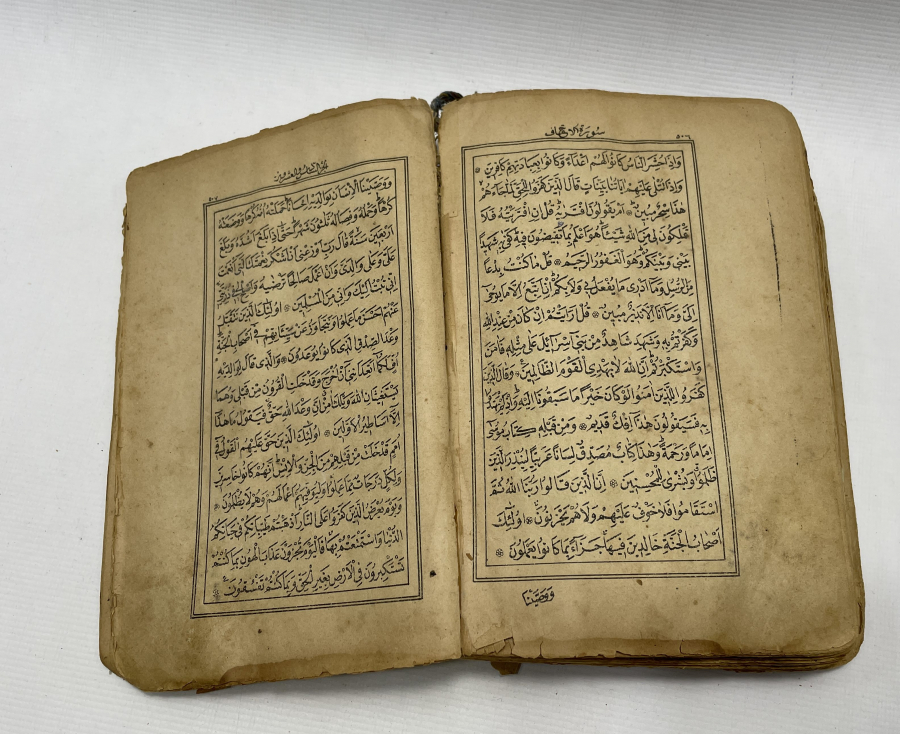 ٥٠٦
سورة الاحقاف
وَاِذَا حُشِرَ النَّاسُ كَانُوا لَهُمْ اَعْدَاءً وَكَانُوا بِعِبَادَتِهِمْ كَافِرِينَ
وَاِذَا تُتْلَى عَلَيْهِمْ اٰيَاتُنَا بَيِّنَاتٍ قَالَ الَّذِينَ كَفَرُوا لِلْحَقِّ لَمَّا جَاءَهُمْ
هٰذَا سِحْرٌ مُبِينٌ اَمْ يَقُولُونَ افْتَرٰيهُ قُلْ اِنِ افْتَرَيْتُهُ فَلَا
تَمْلِكُونَ لِي مِنَ اللّٰهِ شَيْئًا هُوَ اَعْلَمُ بِمَا تُفِيضُونَ فِيهِ كَفٰى بِهِ شَهِيدًا
بَيْنِي وَبَيْنَكُمْ وَهُوَ الْغَفُورُ الرَّحِيمُ قُلْ مَا كُنْتُ بِدْعًا
مِنَ الرُّسُلِ وَمَا اَدْرِي مَا يُفْعَلُ بِي وَلَا بِكُمْ اِنْ اَتَّبِعُ اِلَّا مَا يُوحٰى
اِلَيَّ وَمَا اَنَا اِلَّا نَذِيرٌ مُبِينٌ قُلْ اَرَاَيْتُمْ اِنْ كَانَ مِنْ عِنْدِ اللّٰهِ
وَكَفَرْتُمْ بِهِ وَشَهِدَ شَاهِدٌ مِنْ بَنِي اِسْرَائِلَ عَلٰى مِثْلِهِ فَاٰمَنَ
وَاسْتَكْبَرْتُمْ اِنَّ اللّٰهَ لَا يَهْدِي الْقَوْمَ الظَّالِمِينَ وَقَالَ الَّذِينَ
كَفَرُوا لِلَّذِينَ اٰمَنُوا لَوْ كَانَ خَيْرًا مَا سَبَقُونَا اِلَيْهِ وَاِذْ لَمْ يَهْتَدُوا
بِهِ فَسَيَقُولُونَ هٰذَا اِفْكٌ قَدِيمٌ وَمِنْ قَبْلِهِ كِتَابُ مُوسٰى
اِمَامًا وَرَحْمَةً وَهٰذَا كِتَابٌ مُصَدِّقٌ لِسَانًا عَرَبِيًّا لِيُنْذِرَ الَّذِينَ
ظَلَمُوا وَبُشْرٰى لِلْمُحْسِنِينَ اِنَّ الَّذِينَ قَالُوا رَبُّنَا اللّٰهُ ثُمَّ
اسْتَقَامُوا فَلَا خَوْفٌ عَلَيْهِمْ وَلَا هُمْ يَحْزَنُونَ اُولٰئِكَ
اَصْحَابُ الْجَنَّةِ خَالِدِينَ فِيهَا جَزَاءً بِمَا كَانُوا يَعْمَلُونَ
وَوَصَّيْنَا
وَوَصَّيْنَا الْاِنْسَانَ بِوَالِدَيْهِ اِحْسَانًا حَمَلَتْهُ اُمُّهُ كُرْهًا وَوَضَعَتْهُ
كُرْهًا وَحَمْلُهُ وَفِصَالُهُ ثَلٰثُونَ شَهْرًا حَتّٰى اِذَا بَلَغَ اَشُدَّهُ وَبَلَغَ
اَرْبَعِينَ سَنَةً قَالَ رَبِّ اَوْزِعْنِي اَنْ اَشْكُرَ نِعْمَتَكَ الَّتِي اَنْعَمْتَ
عَلَيَّ وَعَلٰى وَالِدَيَّ وَاَنْ اَعْمَلَ صَالِحًا تَرْضٰيهُ وَاَصْلِحْ لِي فِي ذُرِّيَّتِي
اِنِّي تُبْتُ اِلَيْكَ وَاِنِّي مِنَ الْمُسْلِمِينَ اُولٰئِكَ الَّذِينَ نَتَقَبَّلُ
عَنْهُمْ اَحْسَنَ مَا عَمِلُوا وَنَتَجَاوَزُ عَنْ سَيِّاٰتِهِمْ فِي اَصْحَابِ الْجَنَّةِ
وَعْدَ الصِّدْقِ الَّذِي كَانُوا يُوعَدُونَ وَالَّذِي قَالَ لِوَالِدَيْهِ
اُفٍّ لَكُمَا اَتَعِدَانِنِي اَنْ اُخْرَجَ وَقَدْ خَلَتِ الْقُرُونُ مِنْ قَبْلِي وَهُمَا
يَسْتَغِيثَانِ اللّٰهَ وَيْلَكَ اٰمِنْ اِنَّ وَعْدَ اللّٰهِ حَقٌّ فَيَقُولُ مَا هٰذَا
اِلَّا اَسَاطِيرُ الْاَوَّلِينَ اُولٰئِكَ الَّذِينَ حَقَّ عَلَيْهِمُ الْقَوْلُ فِي
اُمَمٍ قَدْ خَلَتْ مِنْ قَبْلِهِمْ مِنَ الْجِنِّ وَالْاِنْسِ اِنَّهُمْ كَانُوا خَاسِرِينَ
وَلِكُلٍّ دَرَجَاتٌ مِمَّا عَمِلُوا وَلِيُوَفِّيَهُمْ اَعْمَالَهُمْ وَهُمْ لَا يُظْلَمُونَ
وَيَوْمَ يُعْرَضُ الَّذِينَ كَفَرُوا عَلَى النَّارِ اَذْهَبْتُمْ طَيِّبَاتِكُمْ فِي حَيَاتِكُمُ
الدُّنْيَا وَاسْتَمْتَعْتُمْ بِهَا فَالْيَوْمَ تُجْزَوْنَ عَذَابَ الْهُونِ بِمَا كُنْتُمْ
تَسْتَكْبِرُونَ فِي الْاَرْضِ بِغَيْرِ الْحَقِّ وَبِمَا كُنْتُمْ تَفْسُقُونَ